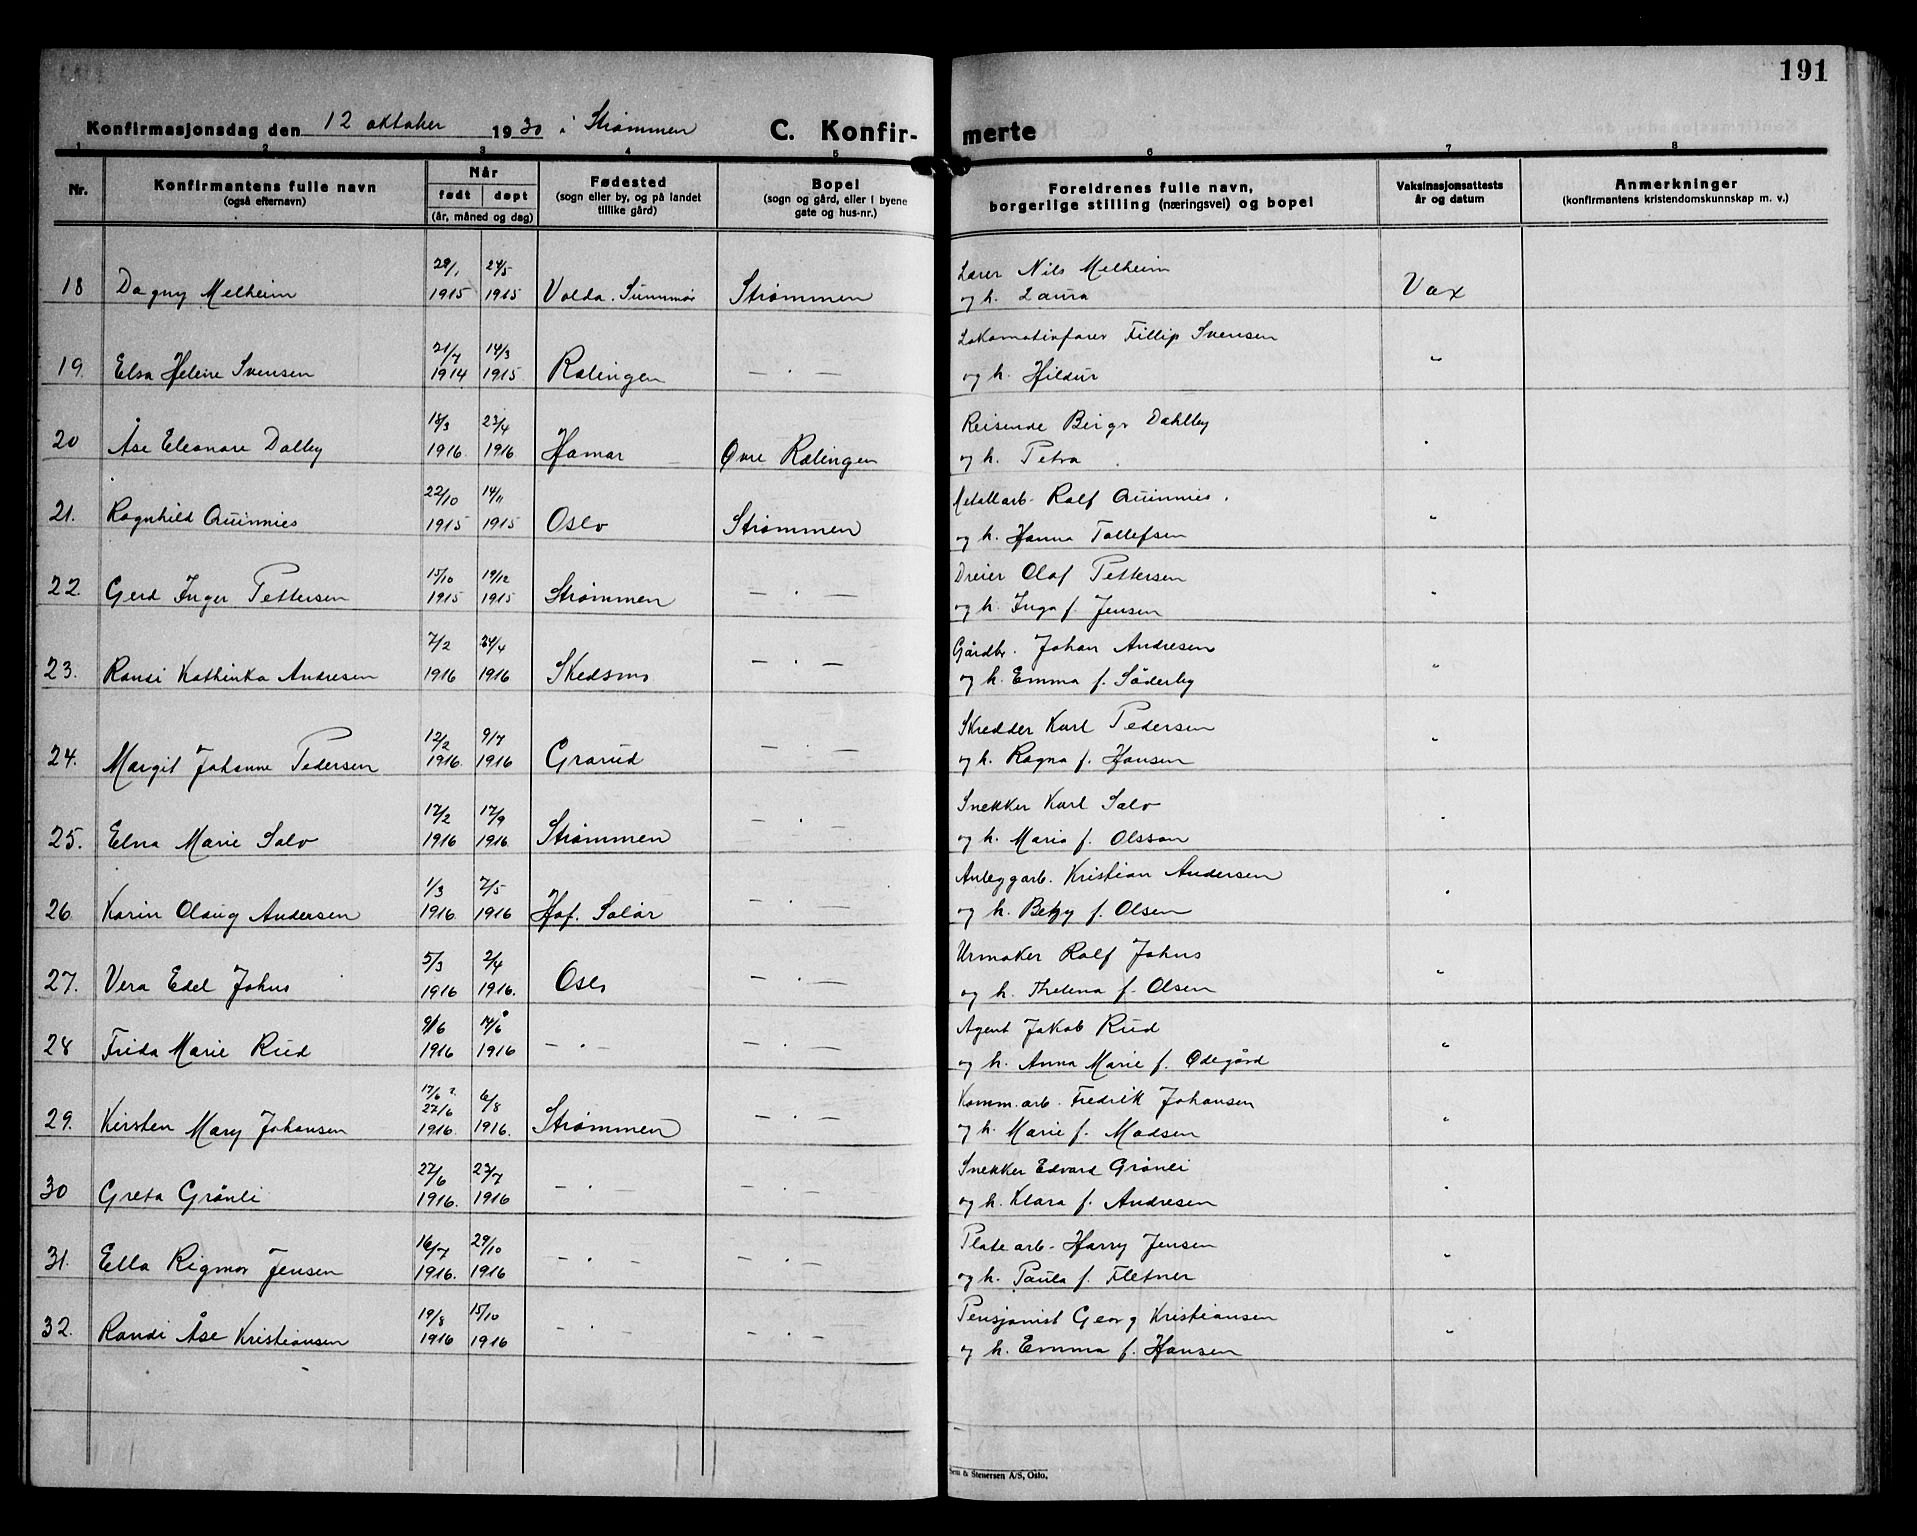 191
Konfirmasjonsdag den 12 oktober 1930 i Strømmen C. Konfir- merte
1 2 3 4 5 6 7 8
Nr. Konfirmantens fulle navn (også efternavn) Når født døpt (år, måned og dag) Fødested (sogn eller by, og på landet tillike gård) Bopel (sogn og gård, eller i byene gate og hus-nr.) Foreldrenes fulle navn, borgerlige stilling (næringsvei) og bopel Vaksinasjonsattests år og datum Anmerkninger (konfirmantens kristendomskunnskap m. v.)
28/1 24/5 Lærer Nils Melheim
18 Dagny Melheim 1915 1915 Volda. Sunnmør Strømmen og h. Laura Vax
21/7 14/3 Lokomotivfører Fillip Svensen
19. Elsa Helene Svensen 1914 1915 Rælingen — . — og h. Hildur "
18/3 23/4 Reisende Birger Dahlby
20 Åse Eleonore Dalby 1916. 1916 Hamar Øvre Rælingen og h. Petra
22/10 14/11 Metallarb. Rolf Quinnies.
21. Ragnhild Quinnies 1915 1915 Oslo Strømmen og h. Hanna Tollefsen "
15/10 19/12 Dreier Olaf Pettersen
22. Gerd Inger Pettersen 1915 1915 Strømmen — . — og h. Inga f. Jensen "
7/2 24/4 Gårdbr. Johan Andresen
23. Randi Kathinka Andresen 1916 1916 Skedsmo — . — og h. Emma f. Söderby "
12/2 9/7 Skredder Karl Pedersen
24. Margit Johanne Pedersen 1916. 1916 Grorud — . — og h. Ragna f. Hansen "
17/2 17/9 Snekker Karl Salo
25. Elna Marie Salo 1916 1916 Strømmen — . — og h. Maria f. Olsson "
1/3 7/5 Anleggarb. Kristian Andersen
26 Karin Olaug Andersen 1916. 1916 Hof. Solør — . — og h. Betzy f. Olsen "
5/3 2/4 Urmaker Ralf Johns
27. Vera Edel Johns 1916 1916. Oslo — . — og h. Thelena f. Olsen "
9/6 Agent Jakob Rud
28 Frida Marie Rud 1916 1916 — . — — . — og h. Anna Marie f. Ødegård "
17/6 ? 27/6 6/8 Komm.arb. Fredrik Johansen
29. Kirsten Mary Johansen 1916. 1916. Strømmen — . — og h. Marie f. Madsen "
27/6 23/7 Snekker Edvard Grönli
30 Greta Grönli 1916. 1916 — . — — . — og h. Klara f. Andresen "
16/7 29/10 Platearb. Harry Jensen
31. Ella Rigmor Jensen 1916. 1916 — . — — . — og h. Paula f. Fletner "
19/8 15/10 Pensjonist Georg Kristiansen
32. Randi Åse Kristiansen 1916 1916 — . — — . — og h. Emma f. Hansen "
Sem & Stenersen A/S, Oslo.